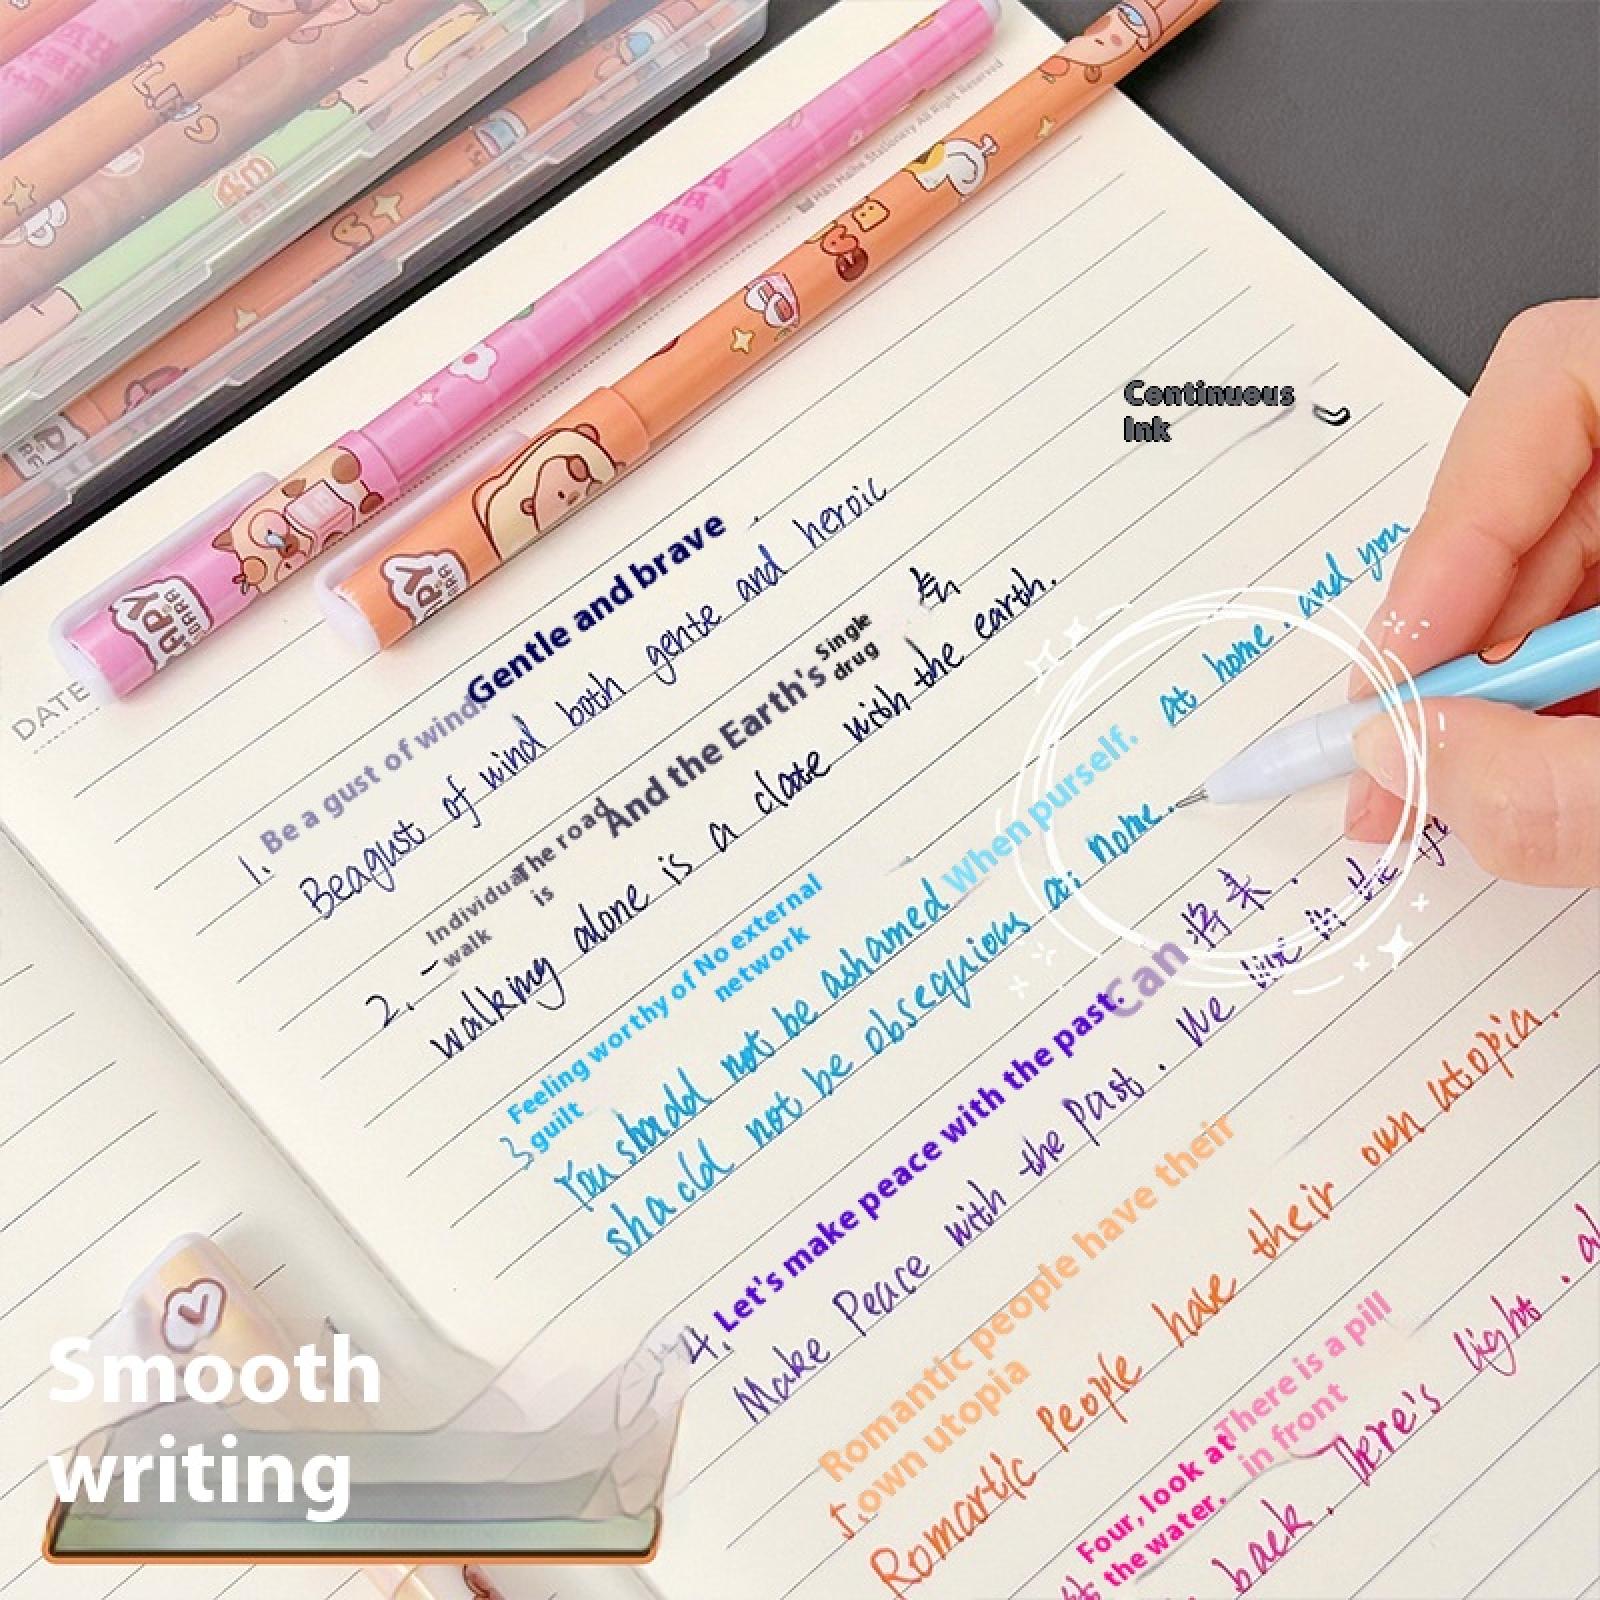 Mäh Maihe Stationery All Right Reserved
DATE
Continuous
Ink
Gentle and brave
1. Be a gust of wind
Beagust of wind both gente and heroic
And the Earth's
Single
drug
The road
is
walk
2. walking alone is a date with the earth.
Feeling worthy of No external
guilt
network
When purself.
3
You shadd not be ashamed at home. and you
shacld not be obsequious at nome.
4. Let's make peace with the past. Can 将来.
Make Peace with the past. We live in the
Romantic people have their
5. own utopia
Romartic People have their own utopia.
There is a pill
in front
Four, look at
the water.
back. There's light.
Smooth
writing